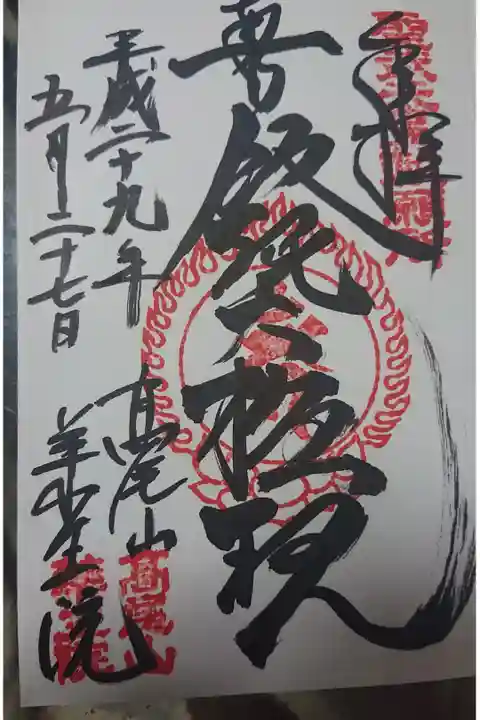 奉拝
飯縄大権現
平成二十九年
五月二十七日
高尾山
薬王院
高尾山
薬王院